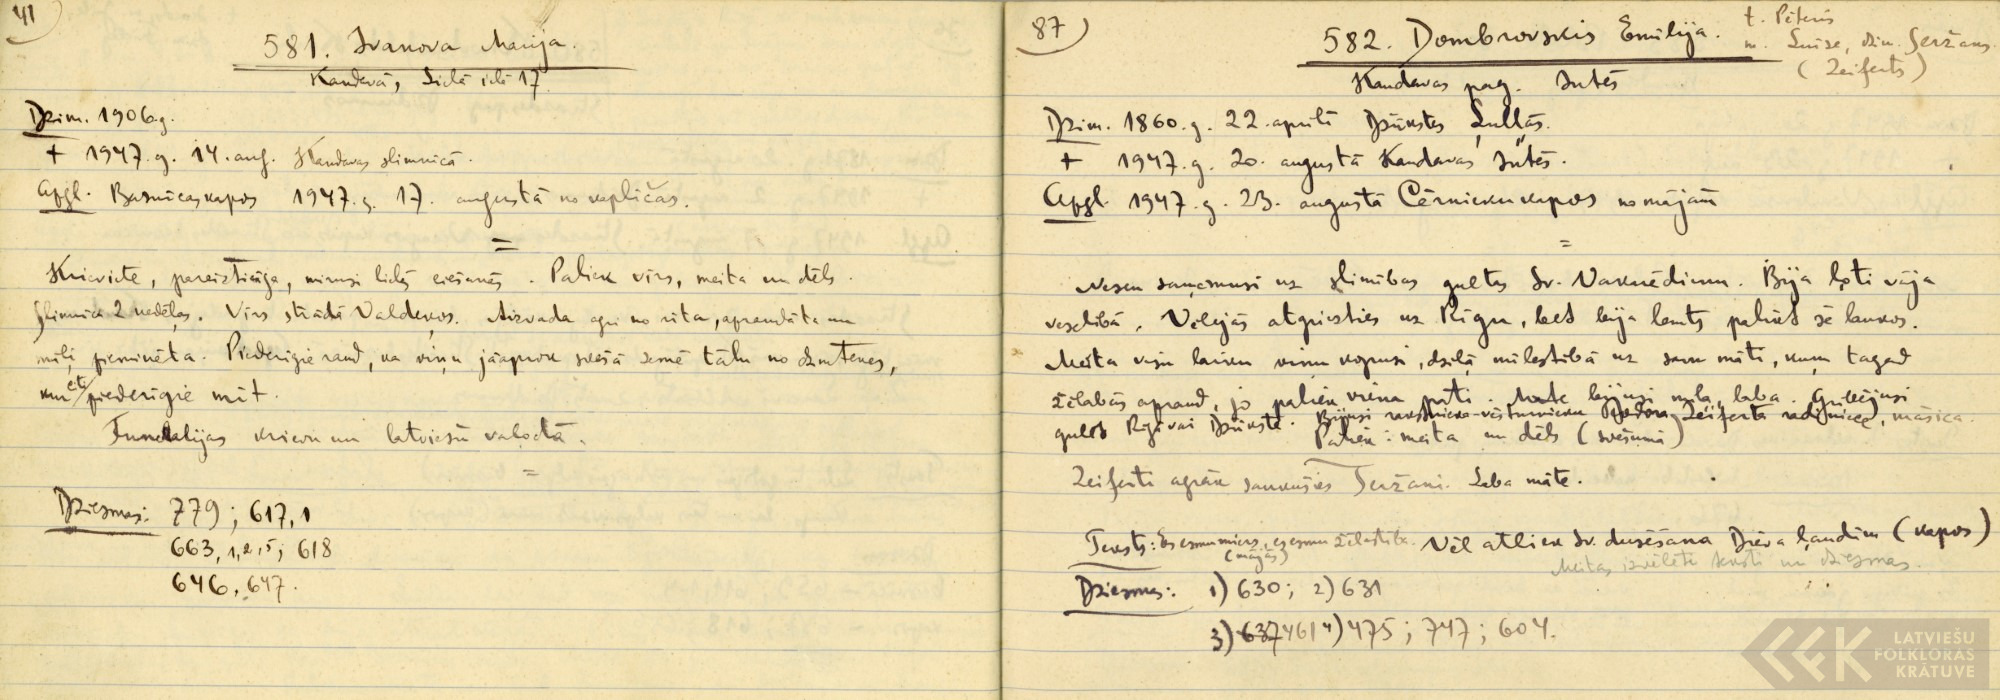 41
581. Ivanova Marija.
Kandavā, Lielā ielā 17
Dzim. 1906.g.
+ 1947.g. 14. aug. Kandavas slimnīcā.
Apgl. Baznīcas kapos 1947.g. 17. augustā no kapličas.
=
Krieviete, pareizticīga, mirusi lielās ciešanās. Paliek vīrs, meita un dēls.
Slimnīcā 2 nedēļas. Vīrs strādā Valdeķos. Aizvada agri no rīta, apraudāta un
mīļi pieminēta. Piederīgie raud, ka viņu jāaprok svešā zemē tālu no dzimtenes,
kur citi piederīgie mīt.
Funkcijas krievu un latviešu valodā.
=
Dziesmas: 779; 617,1
663, 1,2,5; 618
646, 647.
87
582. Dombrovskis Emilija.
t. Pēteris
m. Luīze, dzim. Seržans.
(Zeiferts)
Kandavas pag. Intēs
Dzim. 1860.g. 22. aprīlī Džūkstes Ļullās.
+ 1947.g. 20. augustā Kandavas "Intēs.
Apgl. 1947.g. 23. augustā Cērnieku kapos no mājām
=
Nesen saņēmusi uz slimības gultas Sv. Vakarēdienu. Bija ļoti vāja
veselībā. Vēlējās atgriezties uz Rīgu, bet bija lemts palikt še laukos.
Meita visu laiku viņu kopusi, dziļā mīlestībā uz savu māti, kuru tagad
žēlabās apraud, jo paliek viena pati. Māte bijusi mīļa, laba. Gribējusi
gulēt Rīgā vai Džūkstē. Bijusi rakstnieka-vēsturnieka Teodora Zeiferta radiniece, māsīca.
Paliek: meita un dēls (svešumā)
Zeiferti agrāk saukušies Seržani. Laba māte.
Teksts: Es esmu miers, es esmu žēlastība. Vēl atliek sv. dusēšana Dieva ļaudīm (kapos)
(mājās)
Meitas izvēlēti teksti un dziesmas.
Dziesmas: 1) 630; 2) 631
3) 637 461 4) 475; 747; 604.
LATVIEŠU
FOLKLORAS
KRĀTUVE